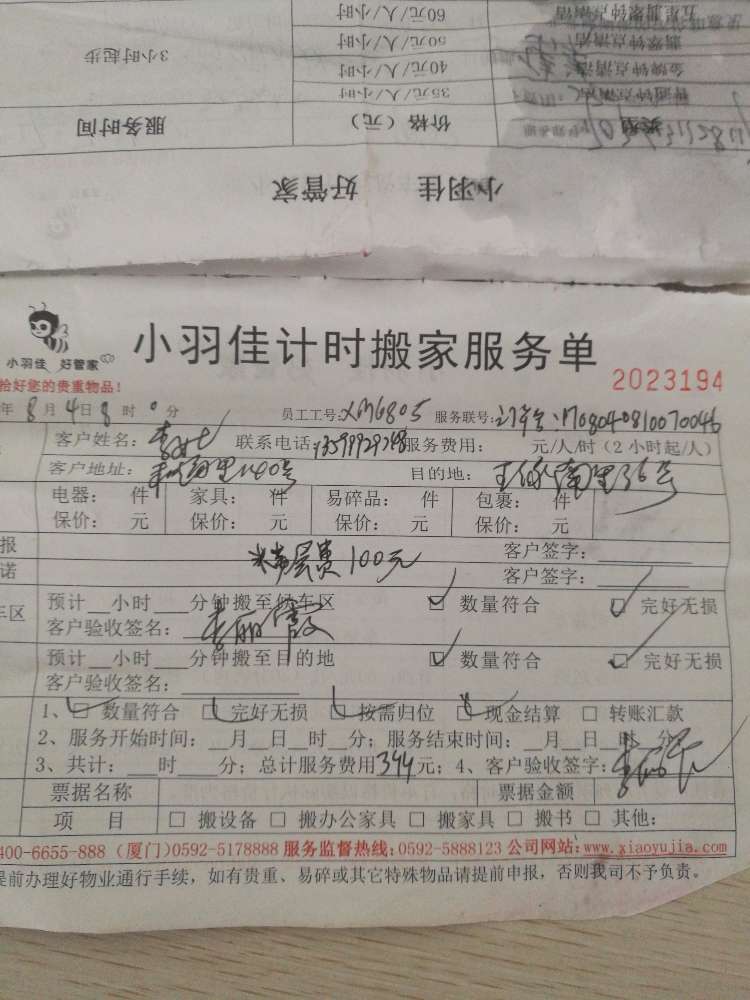 五星翡翠钟点清洁 60元/人/小时
翡翠钟点清洁 50元/人/小时 3小时起步
金牌钟点清洁 40元/人/小时
普通钟点清洁 35元/人/小时
类型 价格（元） 服务时间
小羽佳 好管家
小羽佳 好管家
小羽佳计时搬家服务单
拾好您的贵重物品！
2023194
年8月4日8时0分 员工工号：XM6805 服务联号：订单号：1708040810070046
客户姓名：李女士 联系电话：服务费用： 元/人/时（2小时起/人）
客户地址： 目的地：
电器： 件 家具： 件 易碎品： 件 包裹： 件
保价： 元 保价： 元 保价： 元 保价： 元
报 客户签字：
层费100元
诺 客户签字：
预计__小时___分钟搬至候车区 ☑ 数量符合 ☑ 完好无损
车区
客户验收签名：李丽霞
预计__小时___分钟搬至目的地 ☑ 数量符合 ☑ 完好无损
客户验收签名：
1、☑ 数量符合 ☑ 完好无损 ☑ 按需归位 ☑ 现金结算 □ 转账汇款
2、服务开始时间：__月__日__时__分；服务结束时间：__月__日__时__分
3、共计：___时___分；总计服务费用344元；4、客户验收签字：
票据名称 票据金额
项 目 □ 搬设备 □ 搬办公家具 □ 搬家具 □ 搬书 □ 其他：
400-6655-888（厦门）0592-5178888 服务监督热线：0592-5888123 公司网站：www.xiaoyujia.com
提前办理好物业通行手续，如有贵重、易碎或其它特殊物品请提前申报，否则我司不予负责。